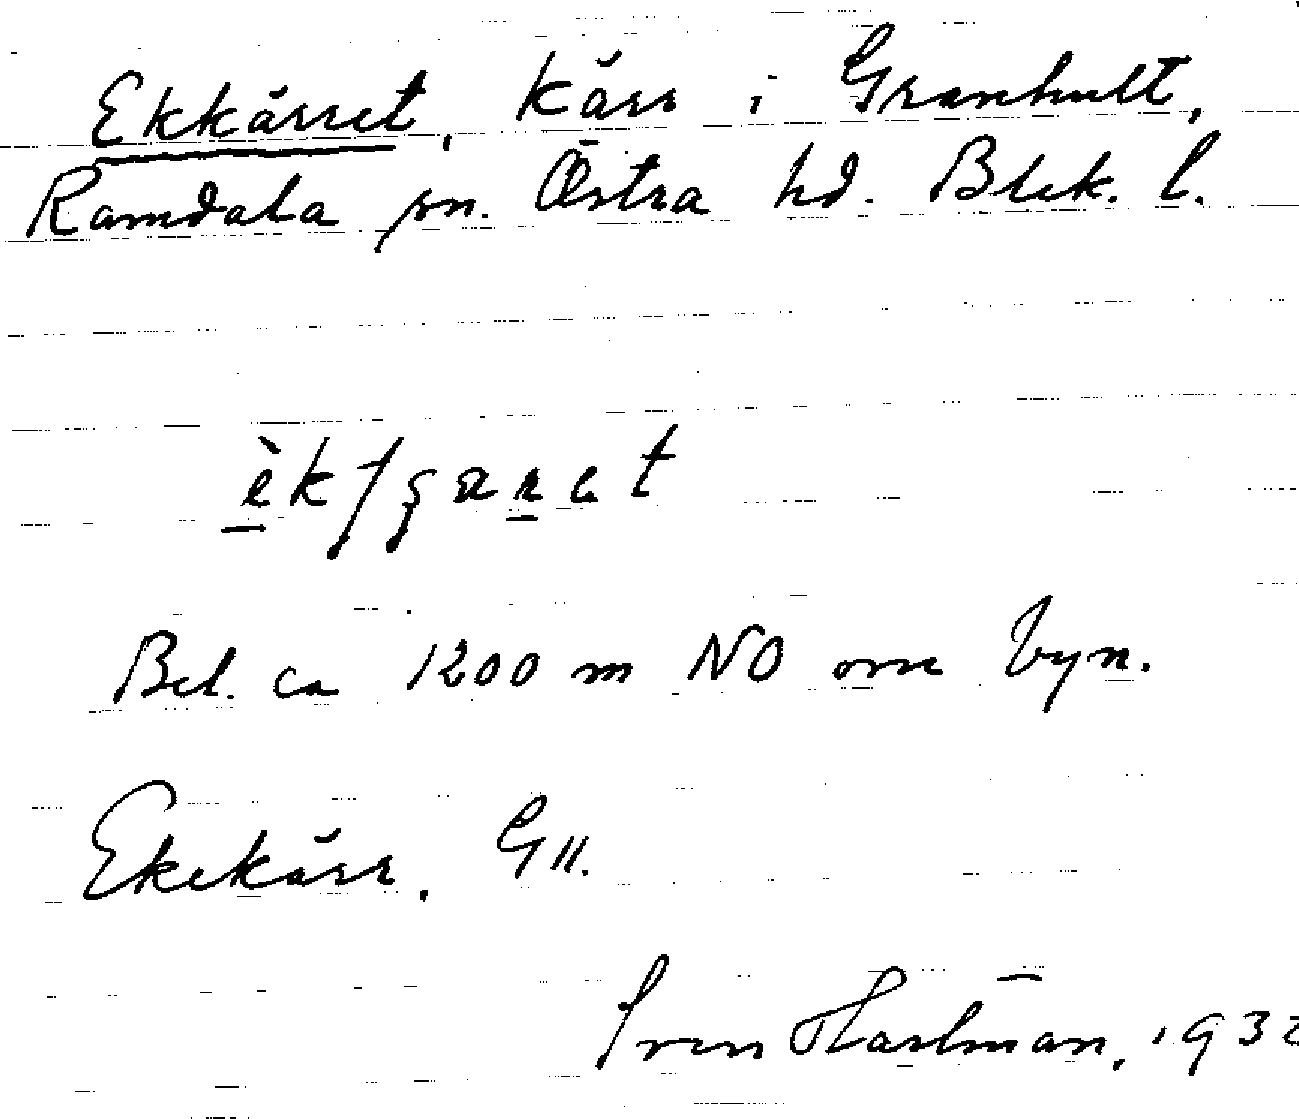 Ekkärret, kärr i Granhult,
Ramdala sn. Östra hd. Blek. l.
Bel. ca 1200 m NO om byn.
Ekekärr. G11.
Sven Hartman, 193